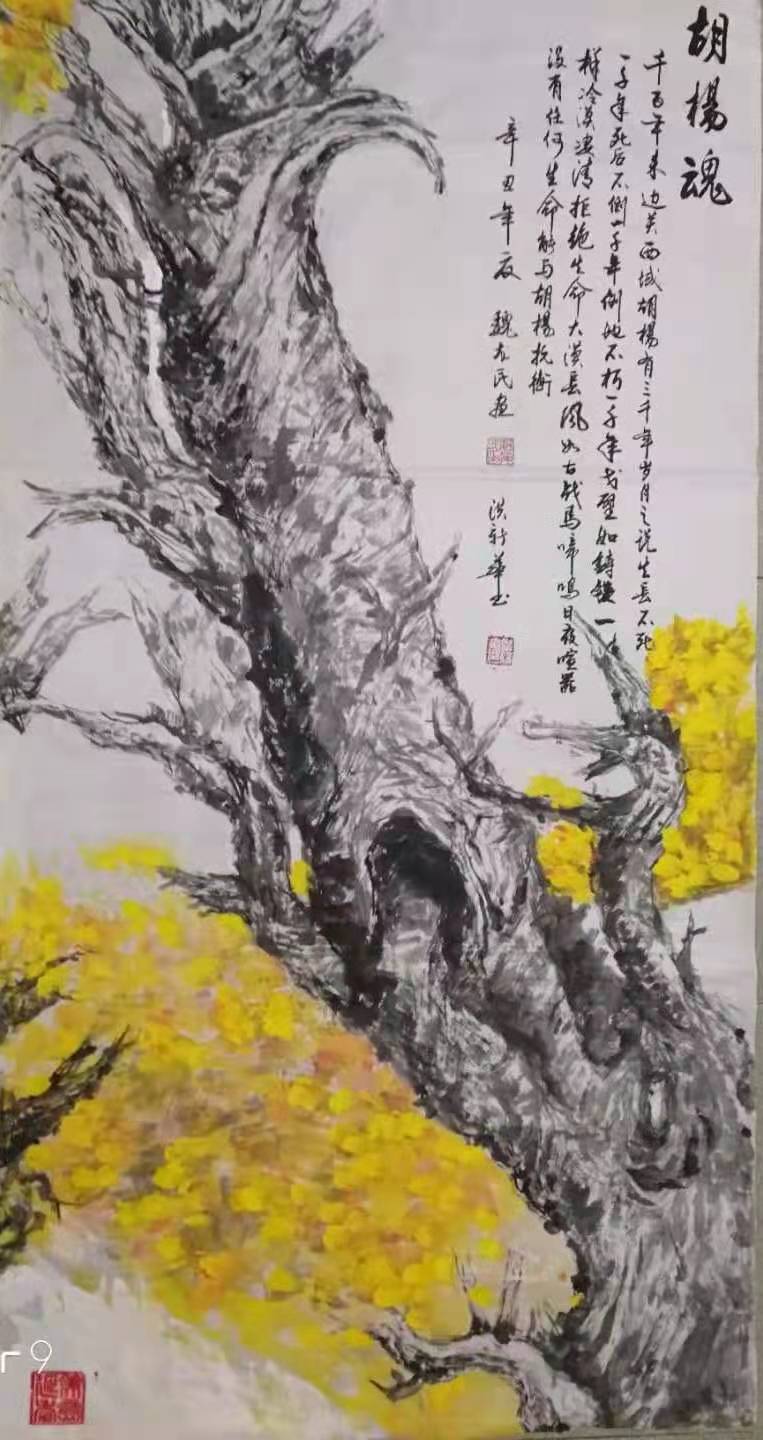 胡楊魂
千百年来边关西域胡楊有三千年岁月之说生长不死
一千年死后不倒一千年倒地不朽一千年戈壁如鋳鐵一
样冷漠凄清拒绝生命大漠長风如古战馬啼鸣日夜喧嚣
没有任何生命能与胡楊抗衡
辛丑年夏 魏 民画
洪新華书
r 9